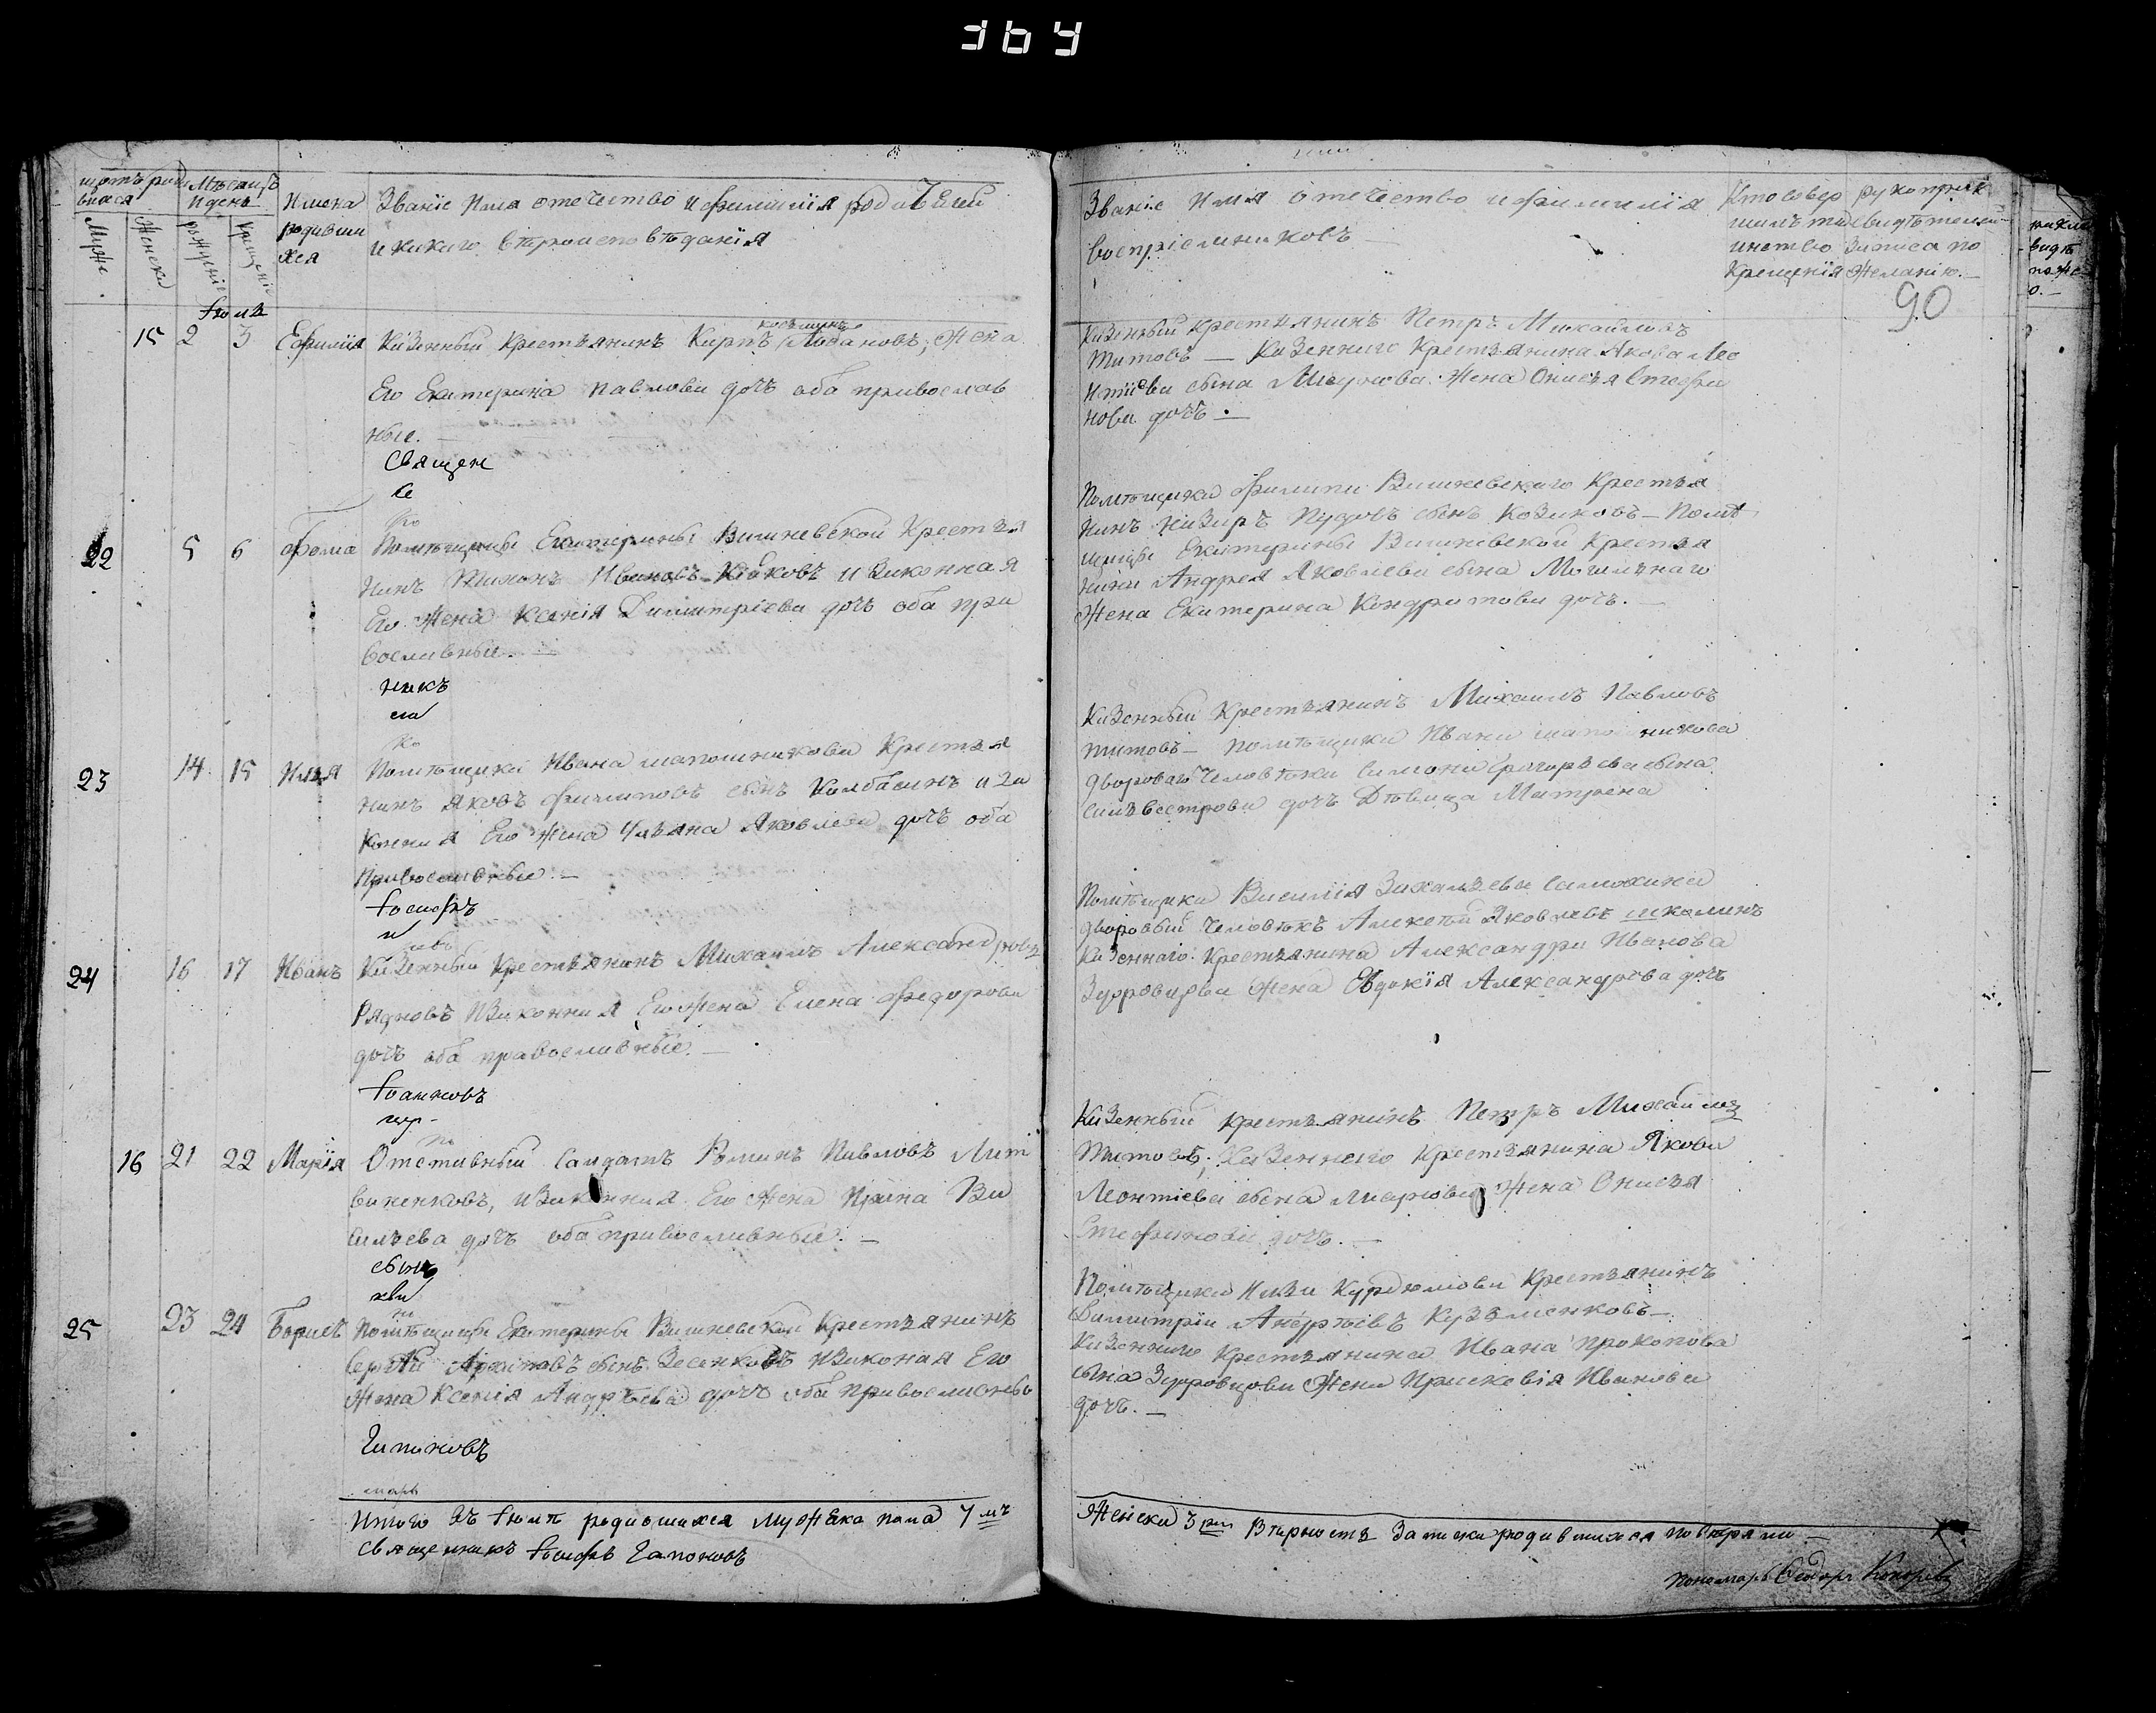 364
щотъ роди
вшася
Мѣсяцъ
и день
Имена
родивши
хся
Званіе Имя отечество и фамилія родителей
и какаго вѣроисповѣданія
Муже.
Женска
рожденіе
крещеніе
Званіе имя отечество и фамилія
воспріемниковъ
Кто совер
шилъ таи
инство
крещенія
рукоприк
видѣтелей
записа по
желанію.
90
Іюля
15 2 3 Ефимія Казенный крестьянинъ Карпъ Лобановъ, жена
Его Екатерина Павлова дочъ оба православ
ные.
Священ
Казенный крестьянинъ Петръ Михайловъ
Титовъ — Казеннаго крестьянина Якова Лео
нтіева сына жена Онисья Стефа
нова дочъ.
22 5 6 Фома Помѣщицы Екатерины Вишневской крестья
нинъ Тихонъ Ивановъ и законная
Его жена Ксенія Димитріева дочъ оба пра
вославные.
никъ
Помѣщика Филипа Вишневскаго крестья
нинъ Назаръ Пудовъ сынъ Козиковъ — Помѣ
щицы Екатерины Вишневской крестья
нина Андрея Яковлева сына
Жена Екатерина Кондратова дочъ.
23 14 15 Илья Помѣщика Ивана Шапошникова крестья
нинъ Яковъ Филиповъ сынъ Колбасинъ и за
конная Его жена Ульяна Яковлева дочъ оба
православные.
Іосифъ
Казенный крестьянинъ Михаилъ Павловъ
Титовъ — помѣщика Ивана Шапошникова
двороваго человѣка Симона Григорьева сына
Сильвестрова дочъ дѣвица Матрена
24 16 17 Иванъ Казенный крестьянинъ Михаилъ Александровъ
Рядновъ и законная Его жена Елена Федорова
дочъ оба православные.
Іоанновъ
Помѣщика Василія Захарьева Самохина
дворовый человѣкъ Алексѣй Яковлевъ
Казеннаго крестьянина Александра Иванова
Здоровцова жена Евдокія Александрова дочъ
16 21 22 Марія Отставный салдатъ Романъ Павловъ Лит
виненковъ, и законная Его жена Ирина Ва
сильева дочъ оба православные.
сынъ
Казенный крестьянинъ Петръ Михайловъ
Титовъ, Казеннаго крестьянина Якова
Леонтіева сына жена Онисья
Стефанова дочъ.
25 23 24 Борисъ Помѣщицы Екатерины Вишневской крестьянинъ
Сергѣй Архиповъ сынъ Зесенковъ и законая Его
жена Ксенія Андрѣева дочъ оба православны
Гапоновъ
Помѣщика Ильи Курдюмова крестьянинъ
Димитрій Андрѣевъ Кузьменковъ —
Казеннаго крестьянина Ивана Прокопова
сына Здоровцова жена Прасковія Иванова
дочъ.
Итого въ Іюлѣ родившихся мужеска пола 7мъ
Священникъ Іосифъ Гапоновъ
женска 3ри Вѣрность записки родившихся повѣряли
Пономарь Федоръ